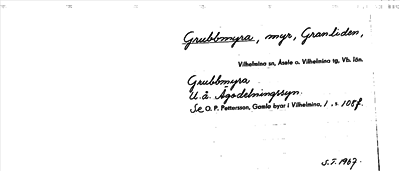 Grubbmyra, myr, Granliden,
Vilhelmina sn, Åsele o. Vilhelmina tg, Vb. län.
Grubbmyra
U.å. Ägodelningssyn.
Se O. P. Pettersson, Gamla byar i Vilhelmina, 1. s 108f.
S.T. 1967.